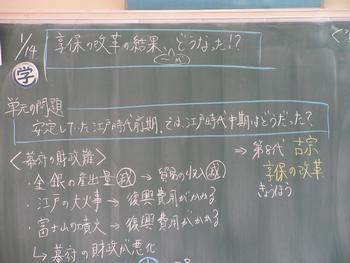 1/14
享保の改革の結果、どうなった!?
学
単元の問題
安定していた江戸時代前期。では、江戸時代中期はどうだった?
<幕府の財政難>
・金銀の産出量減→貿易の収入減
・江戸の大火事→復興費用がかかる
・富士山の噴火→復興費用がかかる
↳幕府の財政が悪化
⇒第8代 吉宗
享保の改革
きょうほう